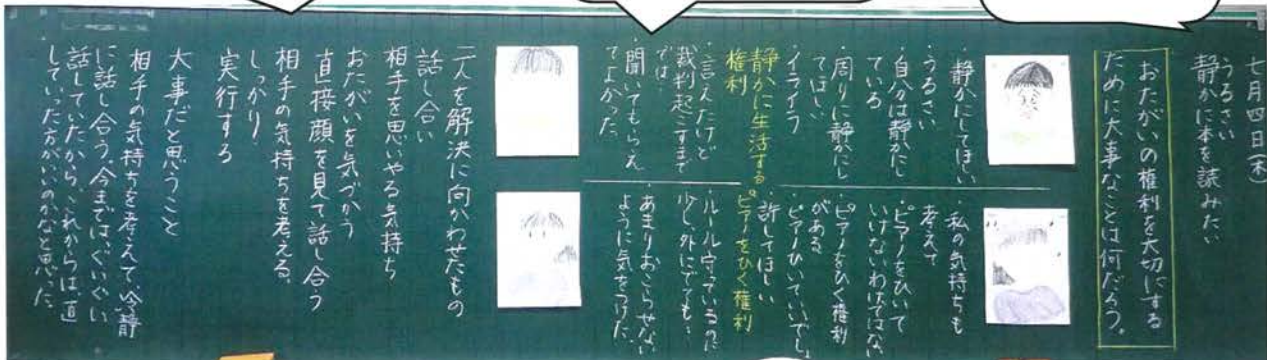 七月四日(木)
うるさい
静かに本を読みたい
おたがいの権利を大切にする
ために大事なことは何だろう。
・静かにしてほしい
・うるさい
・自分は静かにし
ている
・周りに静かにし
てほしい
・イライラ
静かに生活する
権利
・言えたけど
裁判起こすまで
では、
聞いてもらえ
てよかった。
・私の気持ちも
考えて
・ピアノをひいて
いけないわけではない
・ピアノをひく権利
がある
・ピアノひいていいでしょ
・許してほしい
ピアノをひく権利
・ルール守っているのに
少し外にでても…
・あまりおこらせない
ように気をつけた。
二人を解決に向かわせたもの
話し合い
相手を思いやる気持ち
おたがいを気づかう
直接顔を見て話し合う
相手の気持ちを考える。
しっかり
実行する
大事だと思うこと
相手の気持ちを考えて冷静
に話し合う。今までは、ぐいぐい
話していたから、これからは直
していった方がいいのかなと思った。